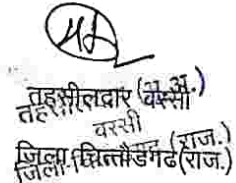 तहसीलदार (भू.अ.)
तहसीलदार बस्सी
बस्सी
जिला चित्तौड़गढ (राज.)
जिला-चित्तौड़गढ (राज.)